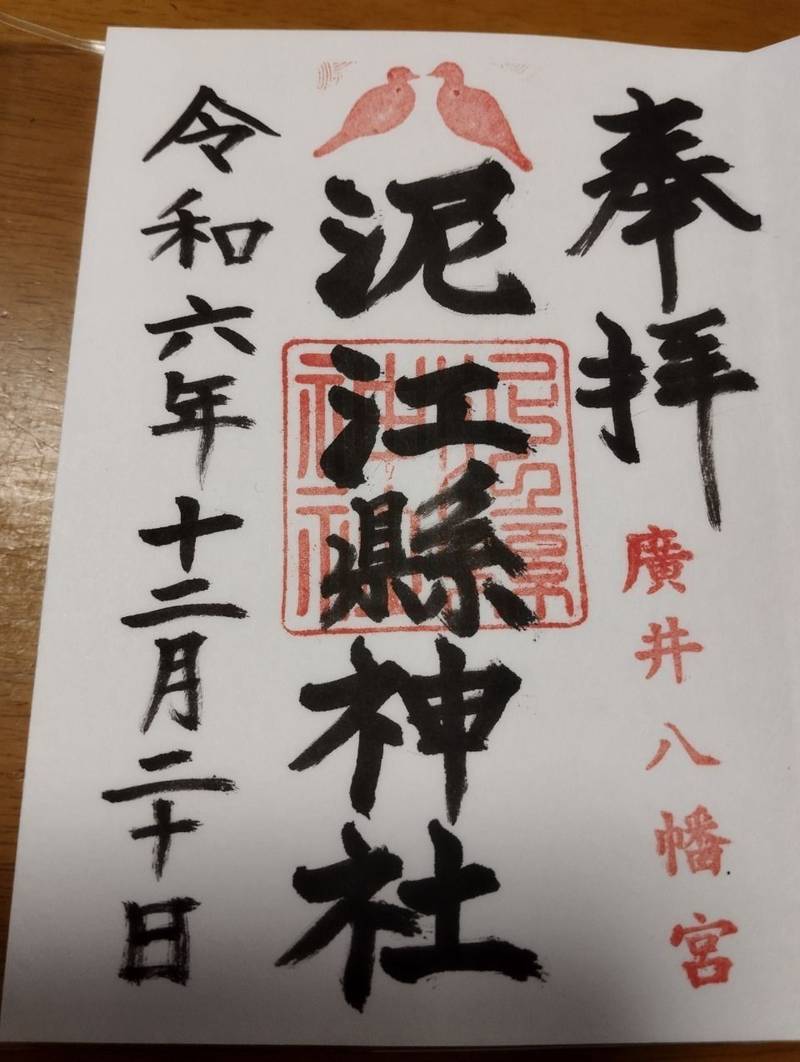 奉拝
廣井八幡宮
泥江縣神社
令和六年十二月二十日